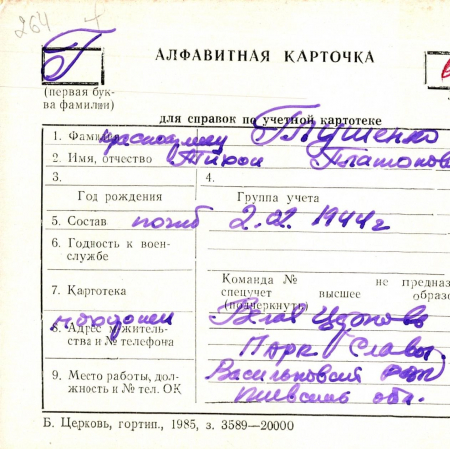 264
Г
АЛФАВИТНАЯ КАРТОЧКА
(первая бук-
ва фамилии)
для справок по учетной картотеке
1. Фамилия красноармеец Глушенко
2. Имя, отчество Тихон Платонов
3.
4.
Год рождения
Группа учета
5. Состав погиб 2.02.1944г
6. Годность к воен-
службе
7. Картотека
Команда № не предназ
спецучет высшее образо
(подчеркнуть)
8. Адрес жительс-
ства и № телефона
Белая Церковь
Парк Славы
9. Место работы, дол-
жность и № тел. ОК
Васильковский
Киевской обл.
Б. Церковь, гортип., 1985, з. 3589—20000